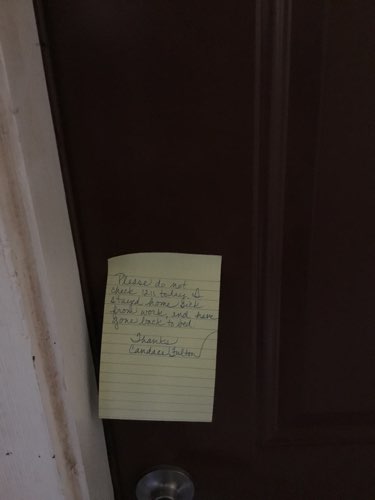 Please do not
check 1211 today. I
stayed home sick
from work, and have
gone back to bed
Thanks
Candace Fulton